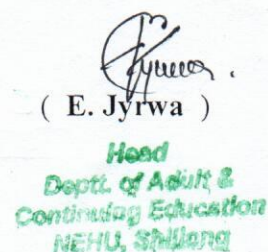 Jyrwa .
( E. Jyrwa )
Head
Deptt. of Adult &
Continuing Education
NEHU, Shillong